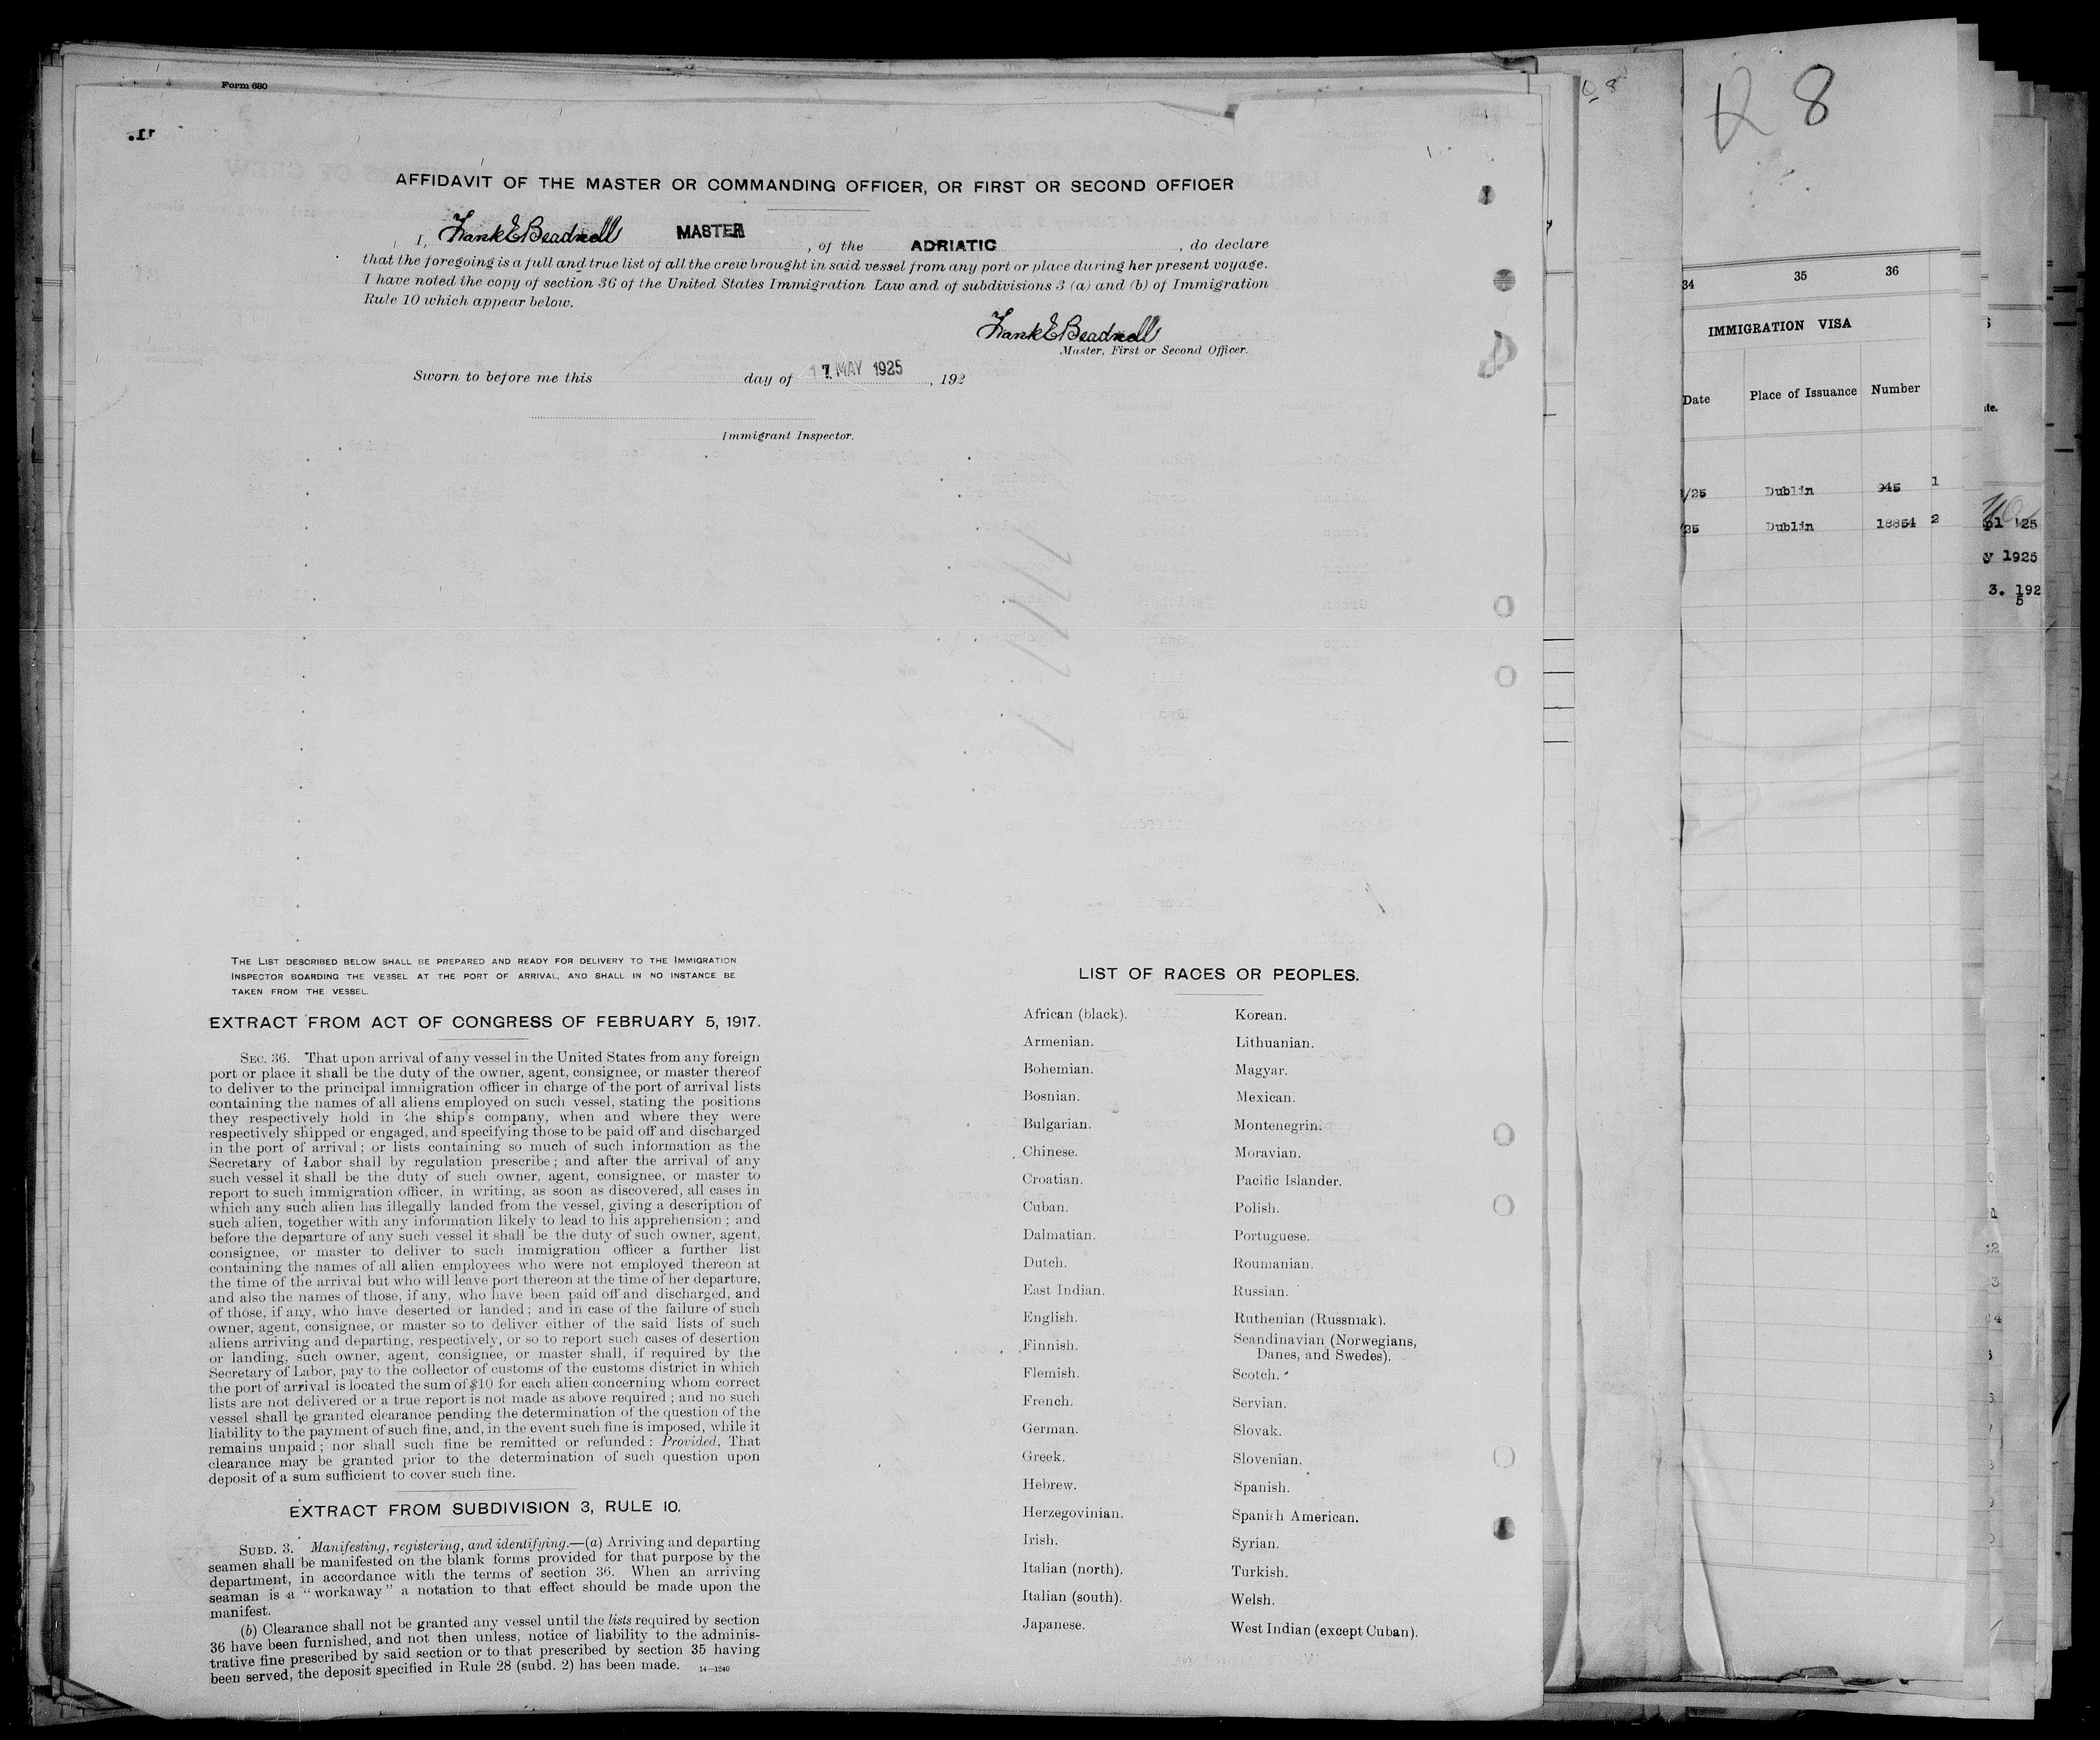 Form 680
AFFIDAVIT OF THE MASTER OR COMMANDING OFFICER, OR FIRST OR SECOND OFFICER
I, Frank E Beadnell MASTER , of the ADRIATIC , do declare
that the foregoing is a full and true list of all the crew brought in said vessel from any port or place during her present voyage.
I have noted the copy of section 36 of the United States Immigration Law and of subdivisions 3 (a) and (b) of Immigration
Rule 10 which appear below.
Frank E Beadnell
Master, First or Second Officer.
Sworn to before me this day of 17 MAY 1925 , 192
Immigrant Inspector.
THE LIST DESCRIBED BELOW SHALL BE PREPARED AND READY FOR DELIVERY TO THE IMMIGRATION
INSPECTOR BOARDING THE VESSEL AT THE PORT OF ARRIVAL, AND SHALL IN NO INSTANCE BE
TAKEN FROM THE VESSEL.
EXTRACT FROM ACT OF CONGRESS OF FEBRUARY 5, 1917.
SEC. 36. That upon arrival of any vessel in the United States from any foreign
port or place it shall be the duty of the owner, agent, consignee, or master thereof
to deliver to the principal immigration officer in charge of the port of arrival lists
containing the names of all aliens employed on such vessel, stating the positions
they respectively hold in the ship's company, when and where they were
respectively shipped or engaged, and specifying those to be paid off and discharged
in the port of arrival; or lists containing so much of such information as the
Secretary of Labor shall by regulation prescribe; and after the arrival of any
such vessel it shall be the duty of such owner, agent, consignee, or master to
report to such immigration officer, in writing, as soon as discovered, all cases in
which any such alien has illegally landed from the vessel, giving a description of
such alien, together with any information likely to lead to his apprehension; and
before the departure of any such vessel it shall be the duty of such owner, agent,
consignee, or master to deliver to such immigration officer a further list
containing the names of all alien employees who were not employed thereon at
the time of the arrival but who will leave port thereon at the time of her departure,
and also the names of those, if any, who have been paid off and discharged, and
of those, if any, who have deserted or landed; and in case of the failure of such
owner, agent, consignee, or master so to deliver either of the said lists of such
aliens arriving and departing, respectively, or so to report such cases of desertion
or landing, such owner, agent, consignee, or master shall, if required by the
Secretary of Labor, pay to the collector of customs of the customs district in which
the port of arrival is located the sum of $10 for each alien concerning whom correct
lists are not delivered or a true report is not made as above required; and no such
vessel shall be granted clearance pending the determination of the question of the
liability to the payment of such fine, and, in the event such fine is imposed, while it
remains unpaid; nor shall such fine be remitted or refunded: Provided, That
clearance may be granted prior to the determination of such question upon
deposit of a sum sufficient to cover such fine.
EXTRACT FROM SUBDIVISION 3, RULE 10.
SUBD. 3. Manifesting, registering, and identifying.—(a) Arriving and departing
seamen shall be manifested on the blank forms provided for that purpose by the
department, in accordance with the terms of section 36. When an arriving
seaman is a "workaway" a notation to that effect should be made upon the
manifest.
(b) Clearance shall not be granted any vessel until the lists required by section
36 have been furnished, and not then unless, notice of liability to the adminis-
trative fine prescribed by said section or to that prescribed by section 35 having
been served, the deposit specified in Rule 28 (subd. 2) has been made. 14—1240
LIST OF RACES OR PEOPLES.
African (black).
Armenian.
Bohemian.
Bosnian.
Bulgarian.
Chinese.
Croatian.
Cuban.
Dalmatian.
Dutch.
East Indian.
English.
Finnish.
Flemish.
French.
German.
Greek.
Hebrew.
Herzegovinian.
Irish.
Italian (north).
Italian (south).
Japanese.
Korean.
Lithuanian.
Magyar.
Mexican.
Montenegrin.
Moravian.
Pacific Islander.
Polish.
Portuguese.
Roumanian.
Russian.
Ruthenian (Russniak).
Scandinavian (Norwegians,
Danes, and Swedes).
Scotch.
Servian.
Slovak.
Slovenian.
Spanish.
Spanish American.
Syrian.
Turkish.
Welsh.
West Indian (except Cuban).
8
34 35 36
IMMIGRATION VISA
Date Place of Issuance Number
/25 Dublin 945 1
25 Dublin 18854 2
pl '25
y 1925
3. 192
5